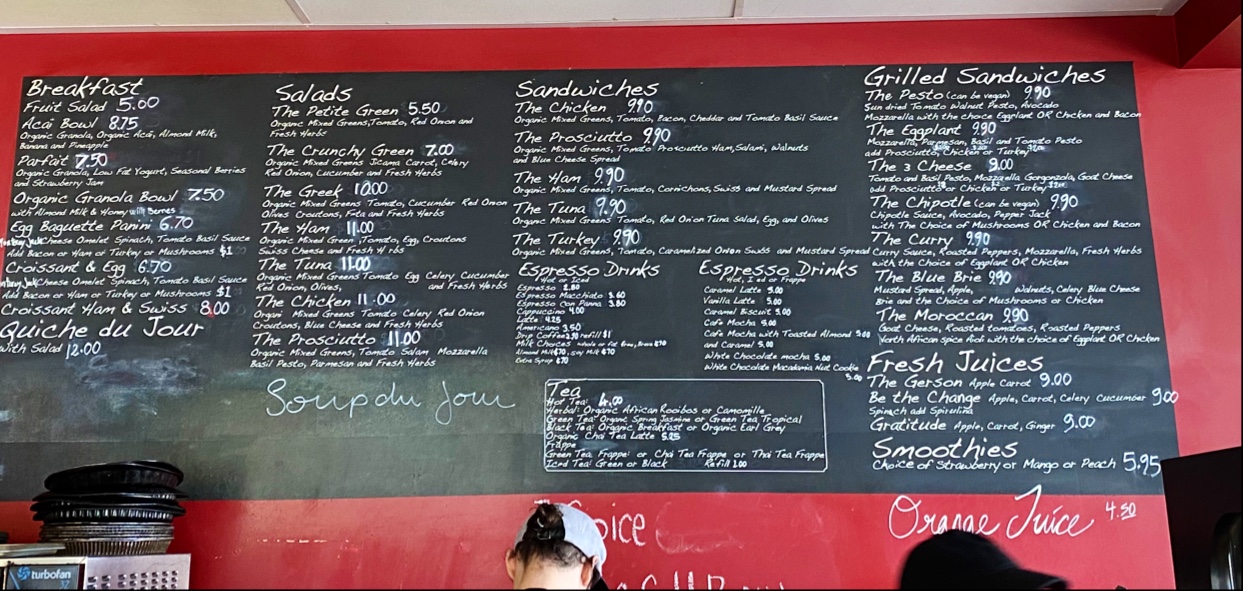 Breakfast
Fruit Salad 5.00
Acai Bowl 8.75
Organic Granola, Organic Acai, Almond Milk,
Banana and Pineapple
Parfait 7.50
Organic Granola, Low Fat Yogurt, Seasonal Berries
and Strawberry Jam
Organic Granola Bowl 7.50
with Almond Milk & Honey with Berries
Egg Baguette Panini 6.70
Cheese Omelet Spinach, Tomato Basil Sauce
Add Bacon or Ham or Turkey or Mushrooms $1
Croissant & Egg 6.70
Cheese Omelet Spinach, Tomato Basil Sauce
Add Bacon or Ham or Turkey or Mushrooms $1
Croissant Ham & Swiss 8.00
Quiche du Jour
with Salad 12.00
Salads
The Petite Green 5.50
Organic Mixed Greens, Tomato, Red Onion and
Fresh Herbs
The Crunchy Green 7.00
Organic Mixed Greens Jicama Carrot, Celery
Red Onion, Cucumber and Fresh Herbs
The Greek 10.00
Organic Mixed Greens Tomato, Cucumber Red Onion
Olives Croutons, Feta and Fresh Herbs
The Ham 11.00
Organic Mixed Green, Tomato, Egg, Croutons
Swiss Cheese and Fresh H rbs
The Tuna 11.00
Organic Mixed Greens Tomato Egg Celery Cucumber
Red Onion, Olives, and Fresh Herbs
The Chicken 11.00
Organi Mixed Greens Tomato Celery Red Onion
Croutons, Blue Cheese and Fresh Herbs
The Prosciutto 11.00
Organic Mixed Greens, Tomato Salam Mozzarella
Basil Pesto, Parmesan and Fresh Herbs
Soup du Jour
Sandwiches
The Chicken 9.90
Organic Mixed Greens, Tomato, Bacon, Cheddar and Tomato Basil Sauce
The Prosciutto 9.90
Organic Mixed Greens, Tomato Prosciutto Ham, Salami, Walnuts
and Blue Cheese Spread
The Ham 9.90
Organic Mixed Greens, Tomato, Cornichons, Swiss and Mustard Spread
The Tuna 9.90
Organic Mixed Greens Tomato, Red Onion Tuna Salad, Egg, and Olives
The Turkey 9.90
Organic Mixed Greens, Tomato, Caramelized Onion Swiss and Mustard Spread
Espresso Drinks
Hot or Iced
Espresso 2.80
Espresso Macchiato 3.60
Espresso Con Panna 3.80
Cappuccino 4.00
Latte 4.25
Americano 3.50
Drip Coffee Refill $1
Milk Choices
Almond Milk $.70, soy Milk $.70
Extra Syrup $.70
Espresso Drinks
Hot, Iced or Frappe
Caramel Latte 5.00
Vanilla Latte 5.00
Caramel Biscuit 5.00
Cafe Mocha 5.00
Cafe Mocha with Toasted Almond 5.00
and Caramel 5.00
White Chocolate mocha 5.00
White Chocolate Macadamia Nut Cookie
5.00
Tea
Hot Tea: 4.00
Herbal: Organic African Rooibos or Camomille
Green Tea: Organic Spring Jasmine or Green Tea Tropical
Black Tea: Organic Breakfast or Organic Earl Grey
Organic Chai Tea Latte 5.25
Frappe
Green Tea Frappe or Chai Tea Frappe or Thai Tea Frappe
Iced Tea: Green or Black Refill 1.00
Grilled Sandwiches
The Pesto (can be vegan) 9.90
Sun dried Tomato Walnut Pesto, Avocado
Mozzarella with the choice Eggplant OR Chicken and Bacon
The Eggplant 9.90
Mozzarella, Parmesan, Basil and Tomato Pesto
add Prosciutto, Chicken or Turkey
The 3 Cheese 9.00
Tomato and Basil Pesto, Mozzarella Gorgonzola, Goat Cheese
add Prosciutto or Chicken or Turkey
The Chipotle (can be vegan) 9.90
Chipotle Sauce, Avocado, Pepper Jack
with The Choice of Mushrooms OR Chicken and Bacon
The Curry 9.90
Curry Sauce, Roasted Peppers, Mozzarella, Fresh Herbs
with the Choice of Eggplant OR Chicken
The Blue Brie 9.90
Mustard Spread, Apple, Walnuts, Celery Blue Cheese
Brie and the Choice of Mushrooms or Chicken
The Moroccan 9.90
Goat Cheese, Roasted tomatoes, Roasted Peppers
North African spice Aioli with the choice of Eggplant OR Chicken
Fresh Juices
The Gerson Apple Carrot 9.00
Be the Change Apple, Carrot, Celery Cucumber 9.00
Spinach add Spirulina
Gratitude Apple, Carrot, Ginger 9.00
Smoothies
Choice of Strawberry or Mango or Peach 5.95
Orange Juice 4.50
turbofan
32